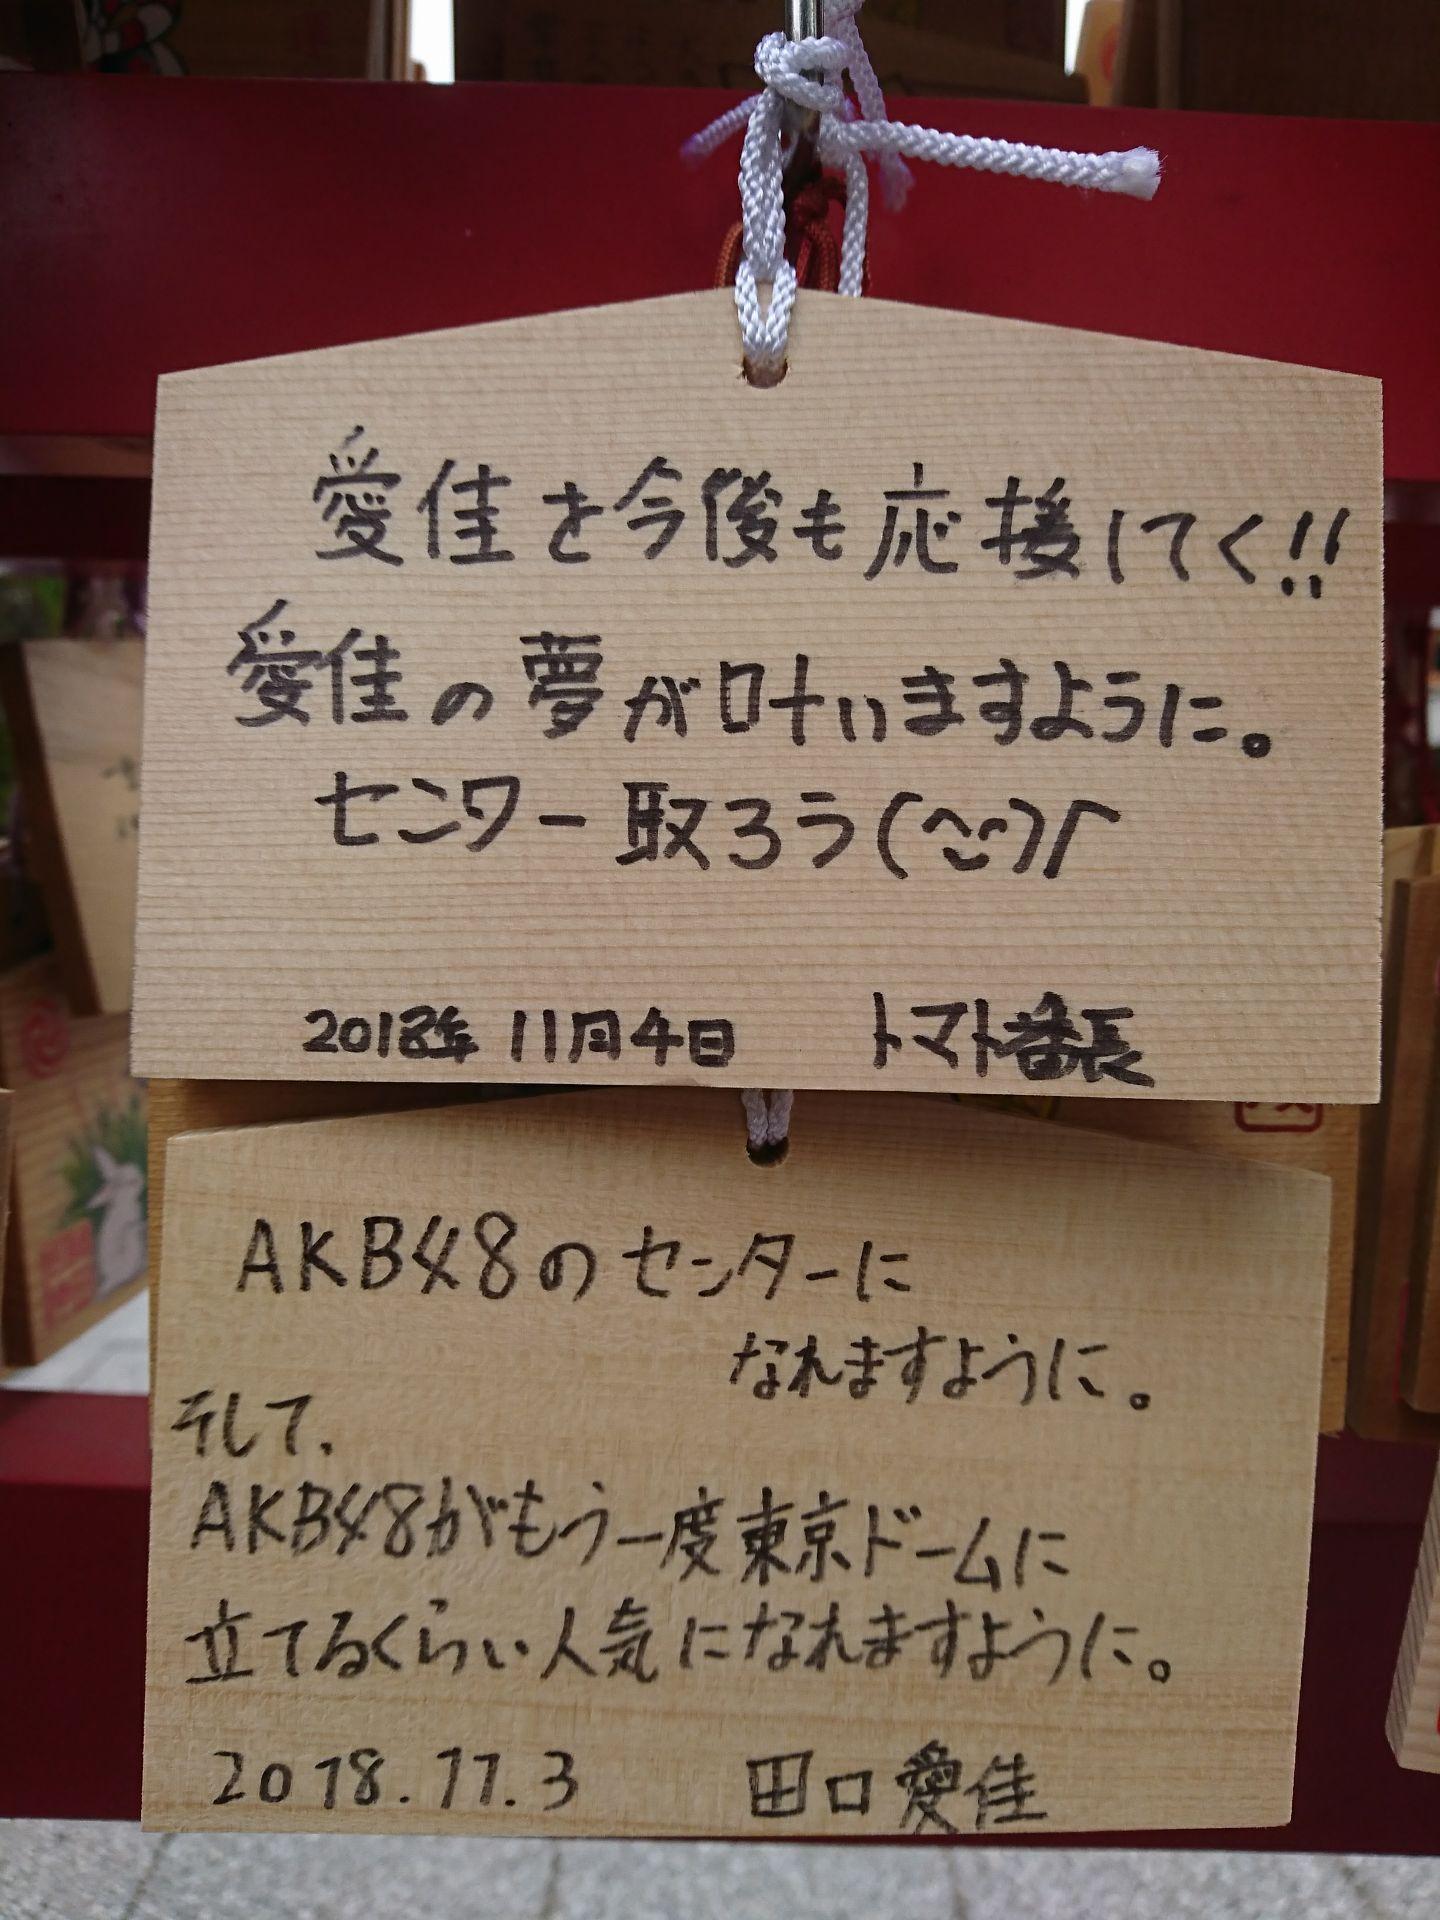 愛佳を今後も応援してく!!
愛佳の夢が叶いますように。
センター取ろう(^^)/
2018年 11月4日 トマト番長
AKB48のセンターに
なれますように。
そして、
AKB48がもう一度東京ドームに
立てるくらい人気になれますように。
2018.11.3 田口愛佳